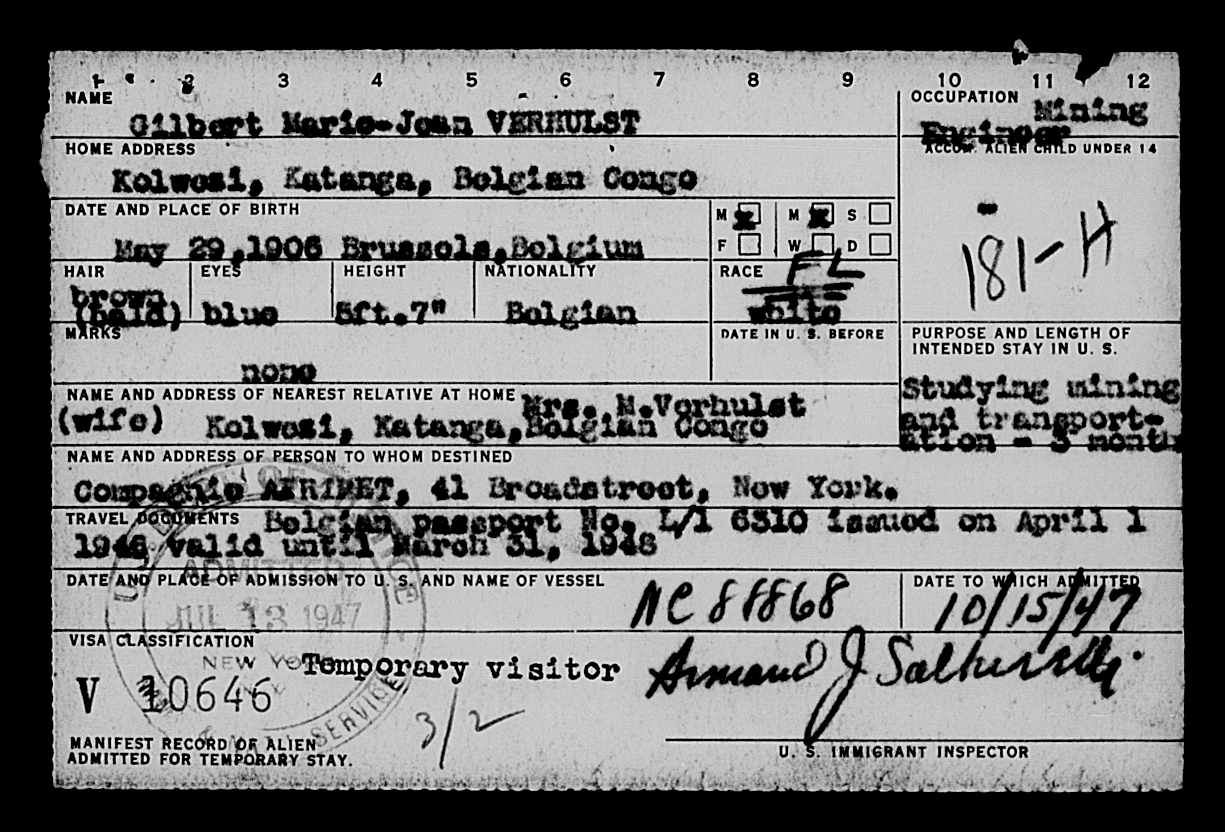 1 2 3 4 5 6 7 8 9 10 11 12
NAME
Gilbert Marie-Jean VERHULST
OCCUPATION Mining
Engineer
HOME ADDRESS
Kolwesi, Katanga, Belgian Congo
ACCOM. ALIEN CHILD UNDER 14
181-H
DATE AND PLACE OF BIRTH
May 29,1906 Brussels,Belgium
M x M x S
F W D
HAIR EYES HEIGHT NATIONALITY RACE FL
brown
(bald) blue 5ft.7" Belgian white
MARKS
none
DATE IN U. S. BEFORE
PURPOSE AND LENGTH OF
INTENDED STAY IN U. S.
Studying mining
and transport-
ation - 3 months
NAME AND ADDRESS OF NEAREST RELATIVE AT HOME Mrs. M.Verhulst
(wife) Kolwesi, Katanga,Belgian Congo
NAME AND ADDRESS OF PERSON TO WHOM DESTINED
Compagnie AFRIMET, 41 Broadstreet, New York.
TRAVEL DOCUMENTS Belgian passport No. L/1 6310 issued on April 1
1946 valid until March 31, 1948
DATE AND PLACE OF ADMISSION TO U. S. AND NAME OF VESSEL
NC 88868
DATE TO WHICH ADMITTED
10/15/47
ADMITTED
JUL 13 1947
NEW YORK
SERVICE
VISA CLASSIFICATION
Temporary visitor
V 10646
3/2
Armand J
MANIFEST RECORD OF ALIEN
ADMITTED FOR TEMPORARY STAY.
U. S. IMMIGRANT INSPECTOR